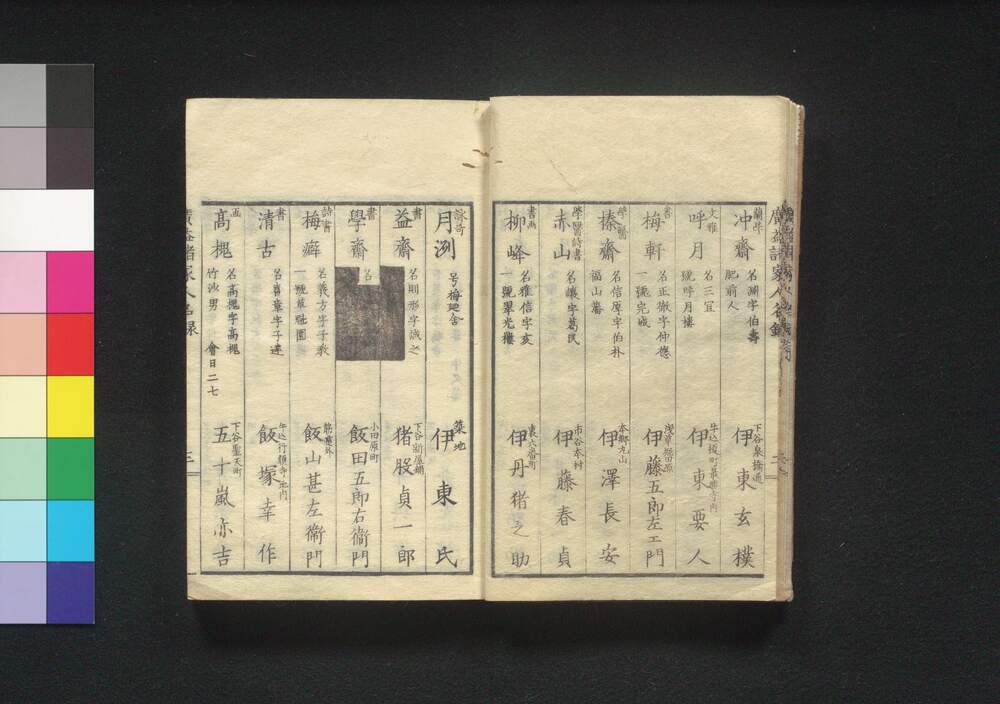 廣益諸家人名録
蘭學
冲齋
名淵字伯壽
肥前人
下谷泉橋通
伊東玄樸
文雅
呼月
名三宜
號呼月樓
伊東要人
書
梅軒
名正徽字仲德
一號完戒
伊藤五郎左エ門
學醫
榛齋
名信厚字伯朴
福山藩
本郷丸山
伊澤長安
學醫詩書
赤山
名讓字葛民
市谷本村
伊藤春貞
書画
柳峰
名雅信字亥
一號翠光樓
裏六番町
伊丹猪之助
詠哥
月洌
号梅廼舎
築地
伊東氏
書
益齋
名則形字誠之
猪股貞一郎
書
學齋
名
小田原町
飯田五郎右衞門
詩書
梅癖
名義方字子教
飯山甚左衞門
書
清古
名喜章字子達
飯塚幸作
画
高槐
名高槐字高槐
竹沙男
會日二七
下谷聖天町
五十嵐亦吉
三